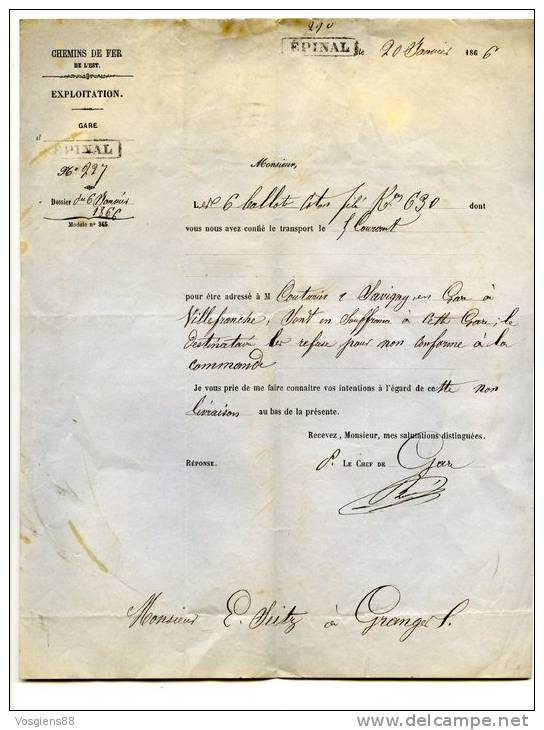 ÉPINAL le 20 Janvier 1866
CHEMINS DE FER
DE L'EST.
EXPLOITATION.
GARE
d
ÉPINAL
No 227
Dossier du 6 Janvier
1866
Modèle n° 345.
Monsieur,
Les 6 ballots coton filé Kos 630 dont
vous nous avez confié le transport le Courant
pour être adressé à M Couturier & Savigny en Gare à
Villefranche, sont en souffrance à cette Gare; le
destinataire les refuse pour non conforme à la
commande
Je vous prie de me faire connaître vos intentions à l'égard de cette non
livraison au bas de la présente.
Recevez, Monsieur, mes salutations distinguées.
RÉPONSE. P. LE CHEF DE Gare
Monsieur E. Seitz à Granges
Vosgiens88
delcampe.net